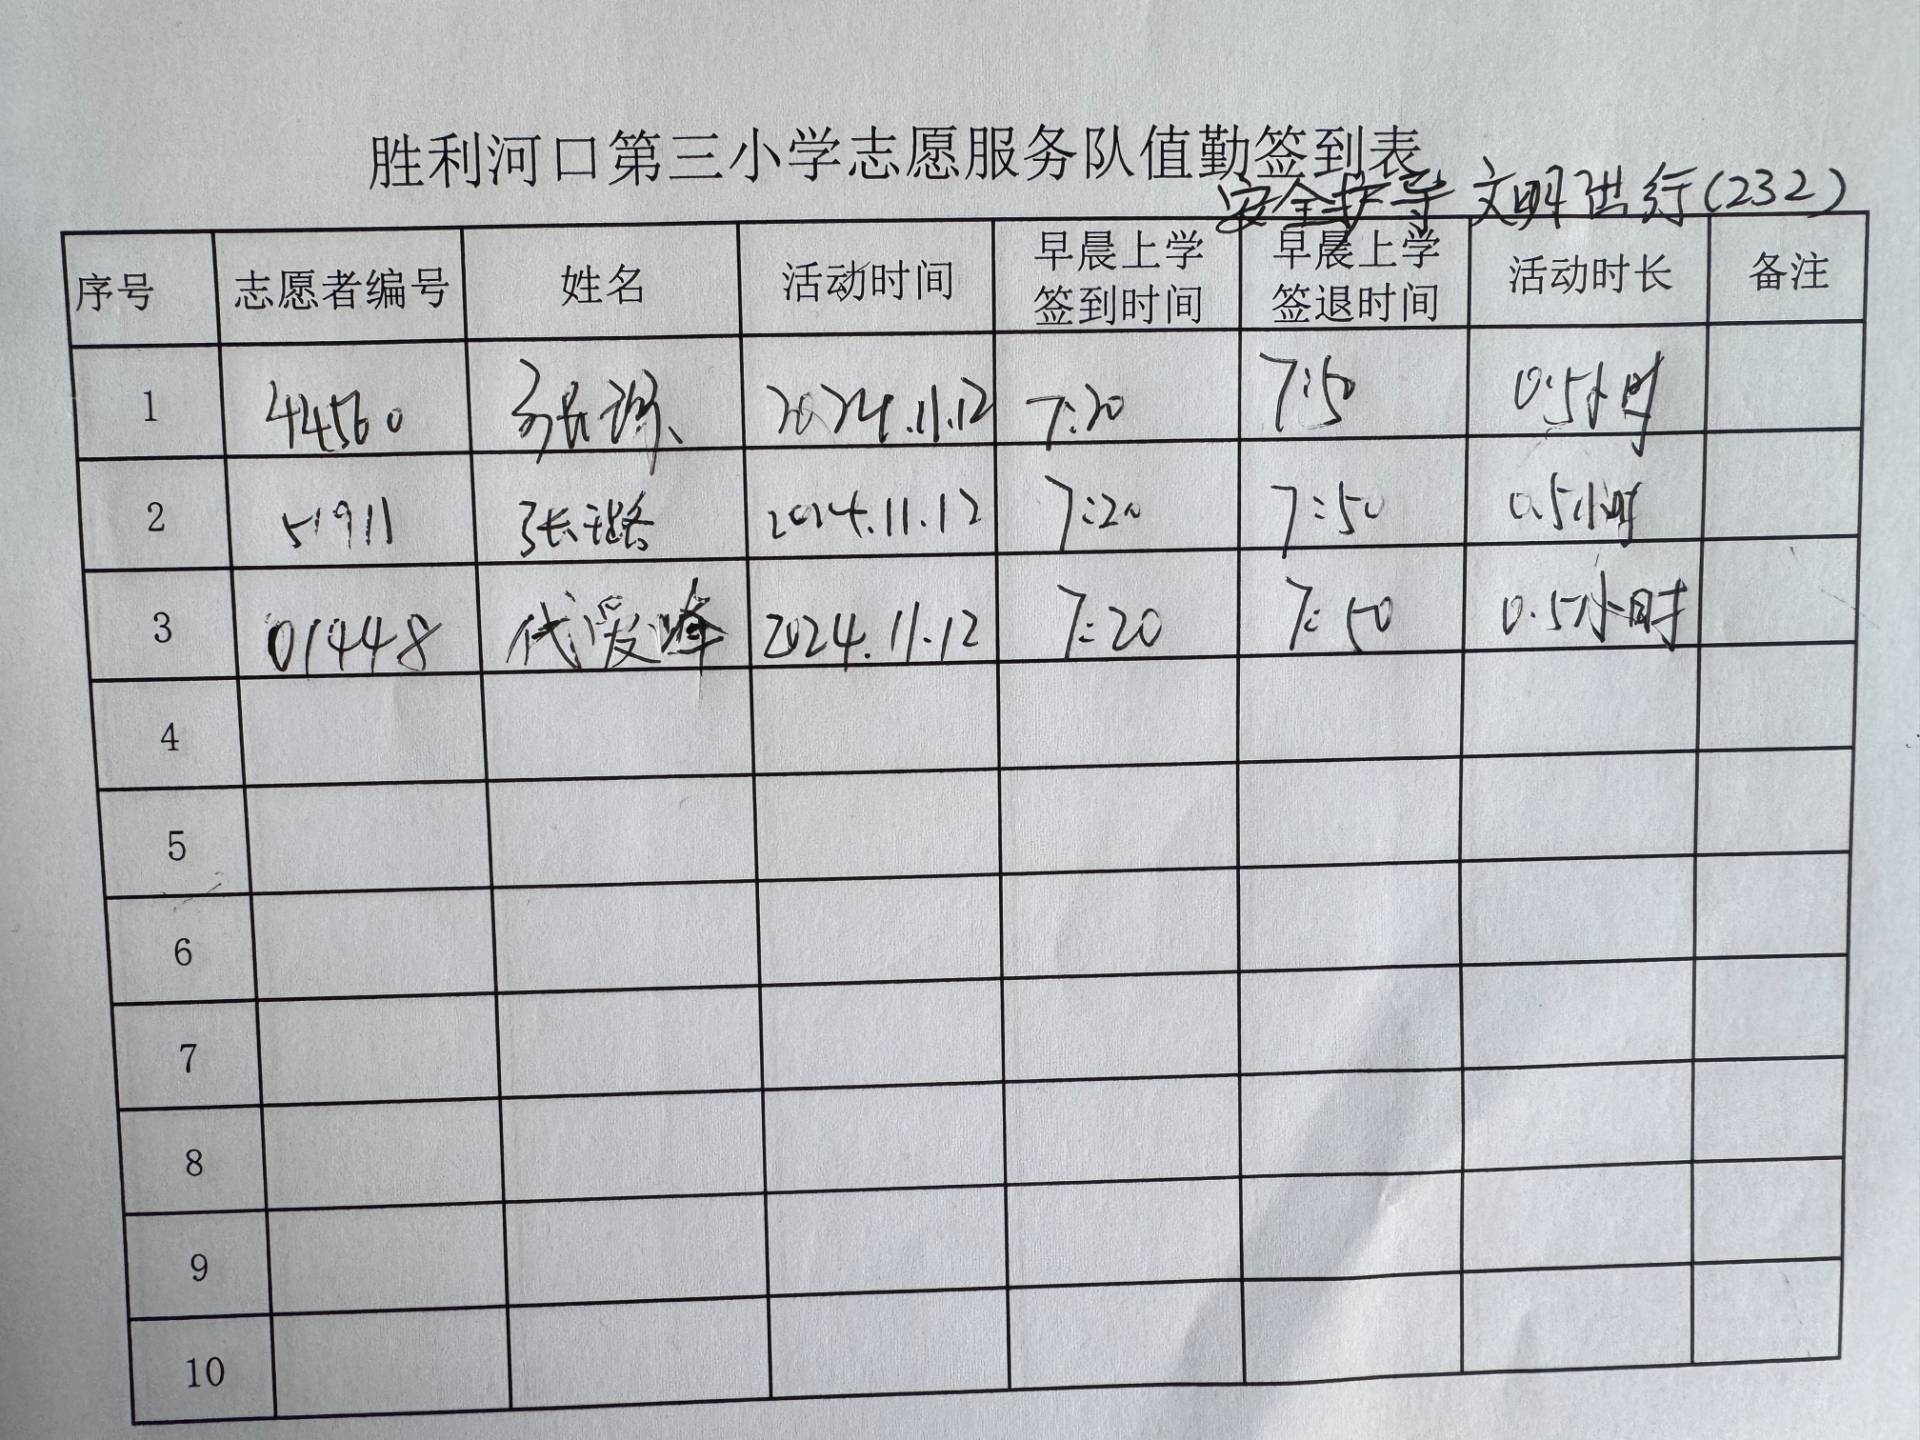 胜利河口第三小学志愿服务队值勤签到表
安全护导 文明出行(232)
序号 志愿者编号 姓名 活动时间 早晨上学签到时间 早晨上学签退时间 活动时长 备注
1 44560 2024.11.12 7:20 7:50 0.5小时
2 51911 张璐 2024.11.12 7:20 7:50 0.5小时
3 01448 代爱峰 2024.11.12 7:20 7:50 0.5小时
4
5
6
7
8
9
10